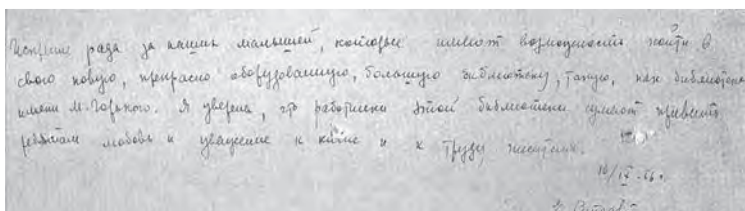 Искренне рада за наших малышей, которые имеют возможность пойти в
свою новую, прекрасно оборудованную, большую библиотеку, такую, как библиотека
имени М. Горького. Я уверена, что работники этой библиотеки сумеют привить
ребятам любовь и уважение к книге и к труду писателя.
16/IV-66г.